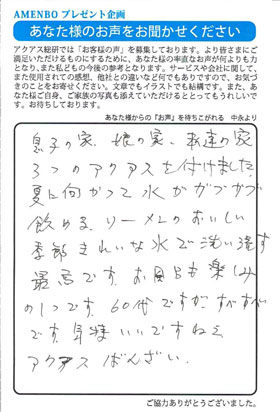 AMENBO プレゼント企画
あなた様のお声をお聞かせください
アクアス総研では「お客様の声」を募集しております。より皆さまにご
満足いただけるものにするために、あなた様の率直なお声が何よりも力
となり、また私どもの今後の参考となります。サービスや会社に関して、
また使用されての感想、他社との違いなど何でもありですので、お気づ
きのことをお寄せください。文章でもイラストでも結構です。また、あ
なた様ご自身、ご家族の写真も添えていただけるととってもうれしいで
す。お待ちしております。
あなた様からの『お声』を待ちこがれる 中永より
息子の家、娘の家、私達の家
3つのアクアスを付けました
夏に向かって水がガブガブ
飲める、ソーメンのおいしい
季節きれいな水で洗い流す
最高です。お風呂も楽しみ
の1つです。60代ですがすべすべ
です。気持いいですねえ
アクアスばんざい。
ご協力ありがとうございました。